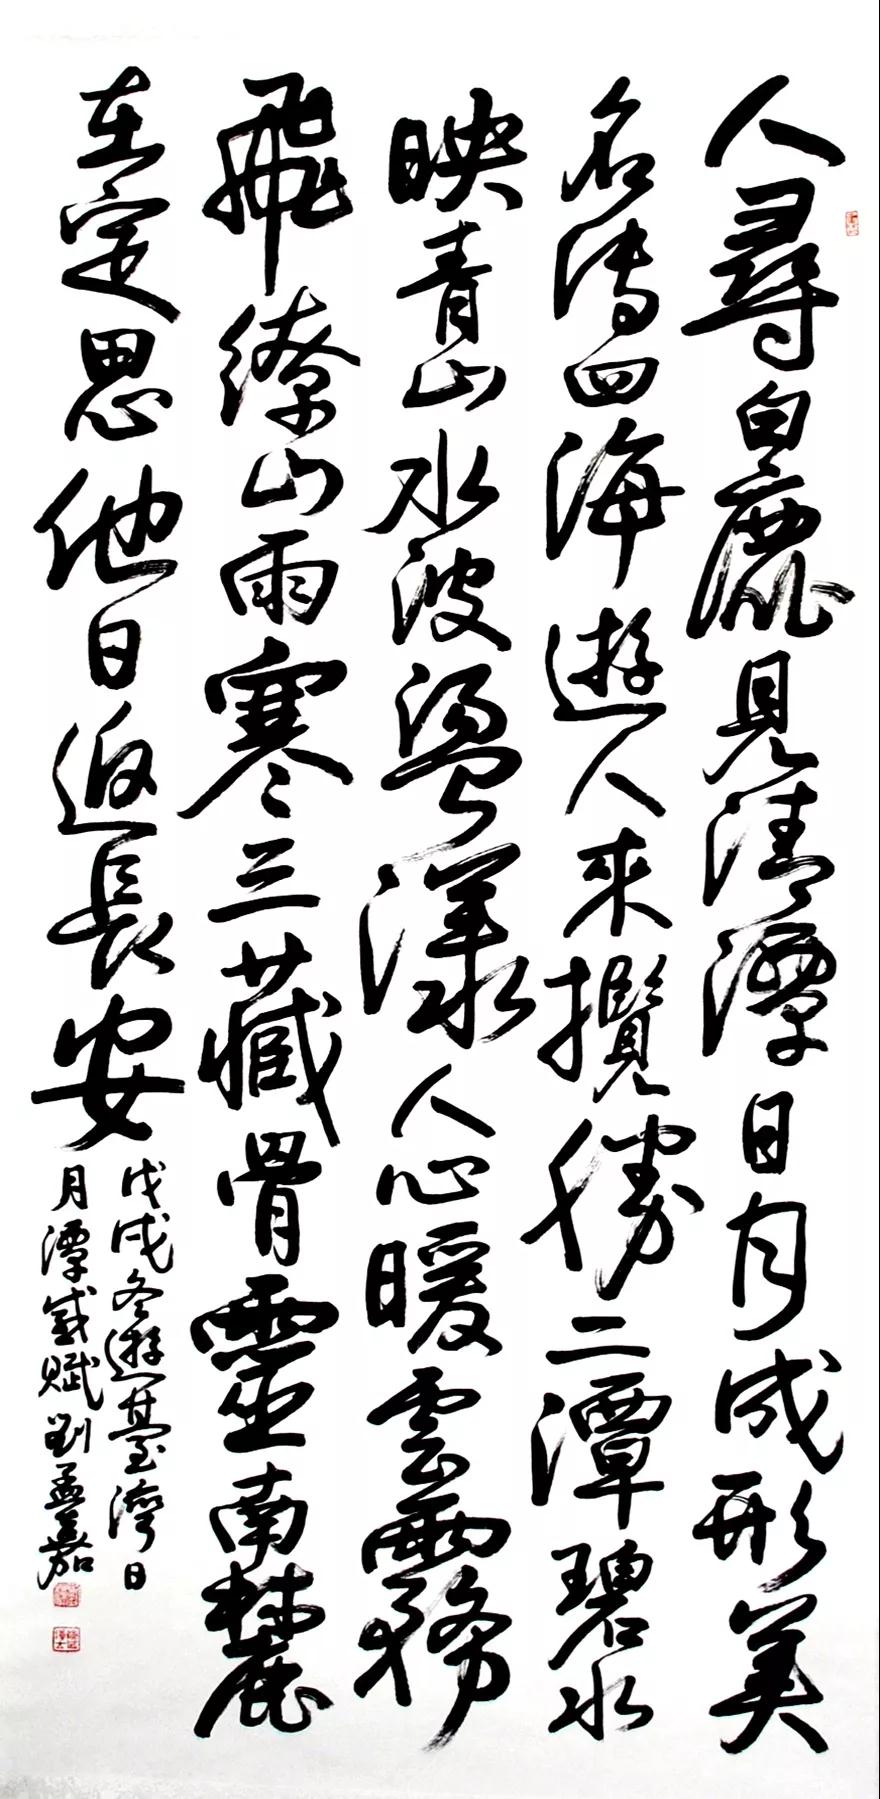 人尋白鹿見清潭日月成形美
名傳四海遊人來攬勝二潭碧水
映青山水波盪漾人心暖雲霧
飛繚山雨寒三藏骨靈南麓
在定思他日返長安
戊戌冬遊臺灣日
月潭感賦劉孟嘉